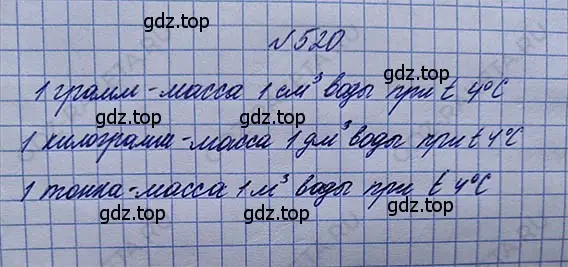 gdz.top
№520
gdz.top
1 грамм-масса 1 см³ воды при t 4°C
1 килограмм-масса 1 дм³ воды при t 4°C
1 тонна-масса 1 м³ воды при t 4°C
gdz.top
gdz.top